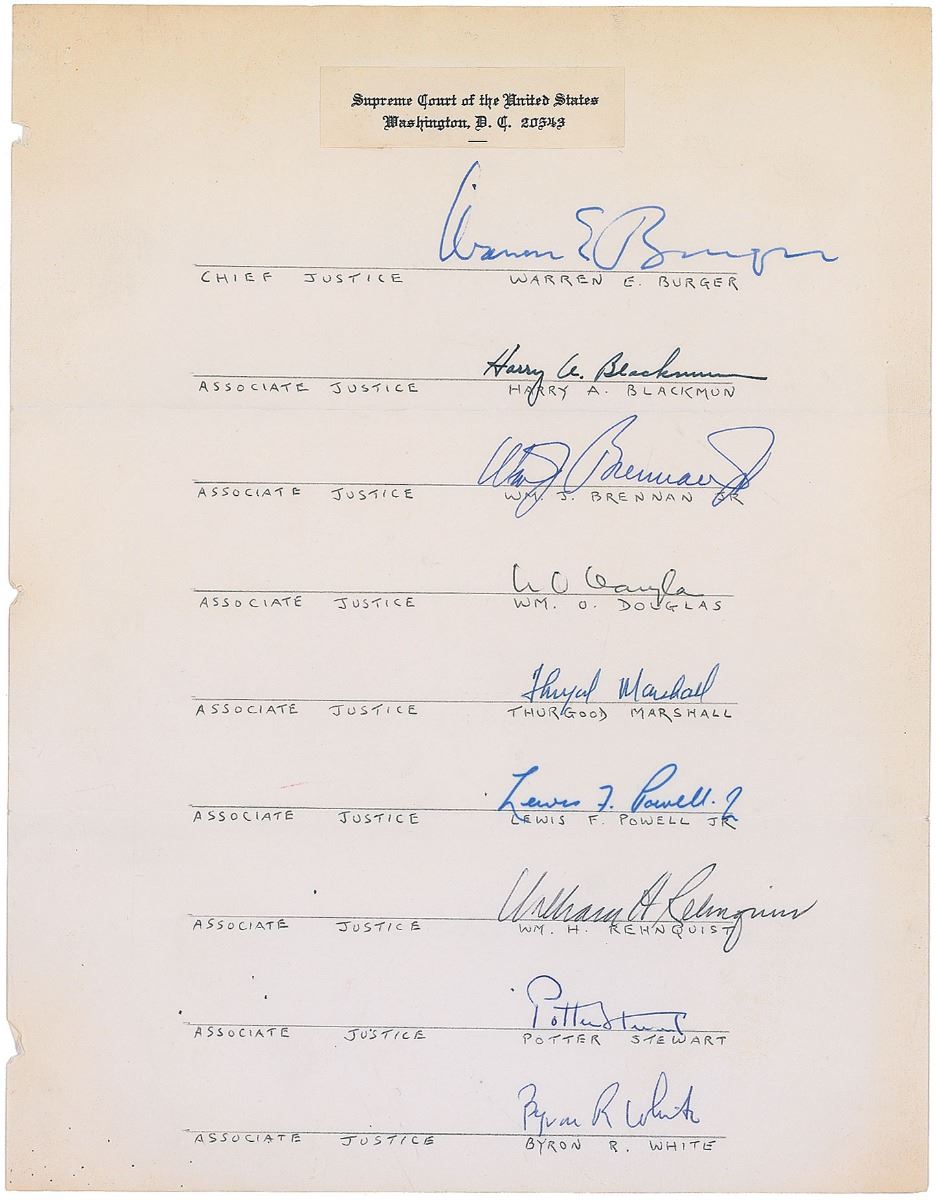 Supreme Court of the United States
Washington, D. C. 20543
Warren E Burger
CHIEF JUSTICE WARREN E. BURGER
Harry A. Blackmun
ASSOCIATE JUSTICE HARRY A. BLACKMUN
Wm J Brennan Jr
ASSOCIATE JUSTICE WM. J. BRENNAN JR
W O Douglas
ASSOCIATE JUSTICE WM. O. DOUGLAS
Thurgood Marshall
ASSOCIATE JUSTICE THURGOOD MARSHALL
Lewis F. Powell. Jr
ASSOCIATE JUSTICE LEWIS F. POWELL JR
William H Rehnquist
ASSOCIATE JUSTICE WM. H. REHNQUIST
Potter Stewart
ASSOCIATE JUSTICE POTTER STEWART
Byron R White
ASSOCIATE JUSTICE BYRON R. WHITE